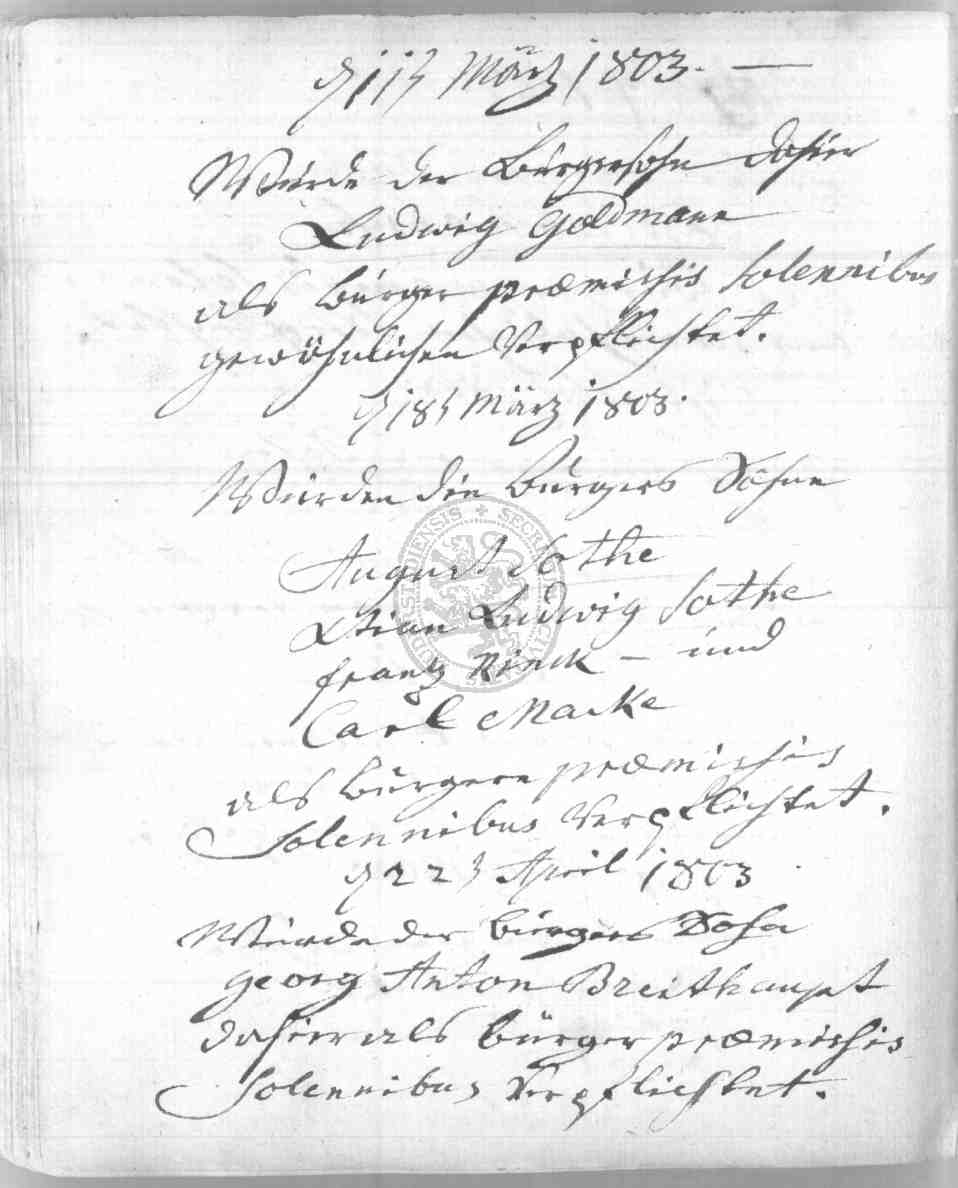 d 11t März 1803. —
Wurde der Bürgersohn dahier
Ludwig Goldmann
als Bürger præmissis solennibus
gewöhnlichen Verpflichtet.
d 18t März 1803.
Wurden die Bürgers Söhne
August Sothe
Ludwig Sothe
frantz Rinck – und
Carl Macke
als Bürgere præmissis
Solennibus Verpflichtet.
d 22t April 1803
Wurde der bürgers Sohn
georg Anton Breithaupt
dahier als bürger præmissis
Solennibus Verpflichtet.